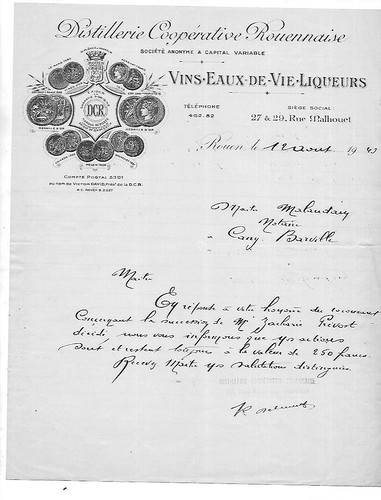 Distillerie Coopérative Rouennaise
SOCIÉTÉ ANONYME A CAPITAL VARIABLE
VINS-EAUX-DE-VIE-LIQUEURS
TÉLÉPHONE
SIÈGE SOCIAL
27 & 29, Rue Malhouet
DCR
MÉDAILLE D'OR
COMPTE POSTAL 5301
AU NOM DE VICTOR DAVID, Prést de la D.C.R.
Rouen, le 12 aout 1943
Maitre Malandain
Notaire
à Cany Barville
Maitre
En réponse à votre honorée du
Concernant la succession de Mr Zacharie Prévost
décédé, nous vous informons que ses actions
sont et restent à la valeur de 250 francs.
Recevez Maitre nos salutations distinguées.
DISTILLERIE COOPÉRATIVE ROUENNAISE